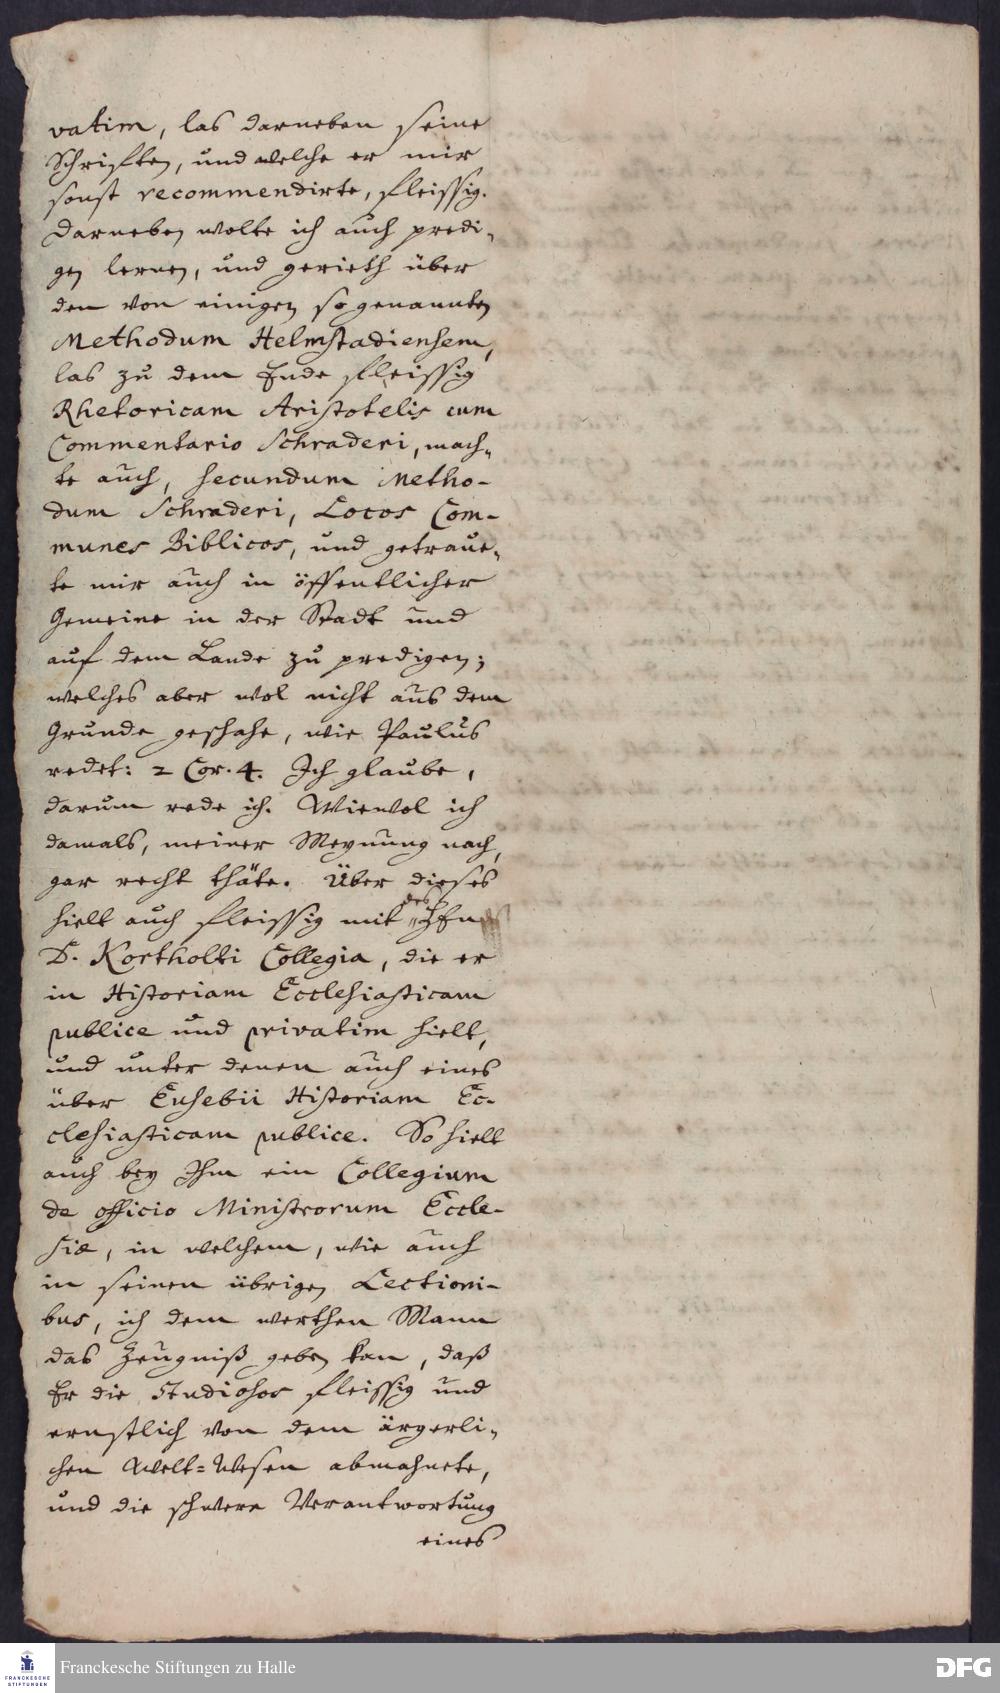 vatim, las darneben seine
Schrifften, und welche er mir
sonst recommendirte, fleissig.
Darneben wolte ich auch predi-
gen lernen, und gerieth über
den von einigen so genannten
Methodum Helmstadiensem,
las zu dem Ende fleissig
Rhetoricam Aristotelis cum
Commentario Schraderi, mach-
te auch, secundum Metho-
dum Schraderi, Locos Com-
munes Biblicos, und getraue-
te mir auch in öffentlicher
Gemeine in der Stadt und
auf dem Lande zu predigen;
welches aber wol nicht aus dem
Grunde geschahe, wie Paulus
redet: 2 Cor. 4. Ich glaube,
darum rede ich. Wiewol ich
damals, meiner Meynung nach,
gar recht thäte. Über dieses
hielt auch fleissig mit des Hrn
D. Kortholti Collegia, die er
in Historiam Ecclesiasticam
publice und privatim hielt,
und unter denen auch eines
über Eusebii Historiam Ec-
clesiasticam publice. So hielt
auch bey Ihm ein Collegium
de officio Ministrorum Eccle-
siæ, in welchem, wie auch
in seinen übrigen Lectioni-
bus, ich dem werthen Mann
das Zeugniß geben kan, daß
Er die Studiosos fleissig und
ernstlich von dem ärgerli-
chen Welt=Wesen abmahnete,
und die schwere Verantwortung
eines
Franckesche Stiftungen zu Halle
FRANCKESCHE
STIFTUNGEN
DFG